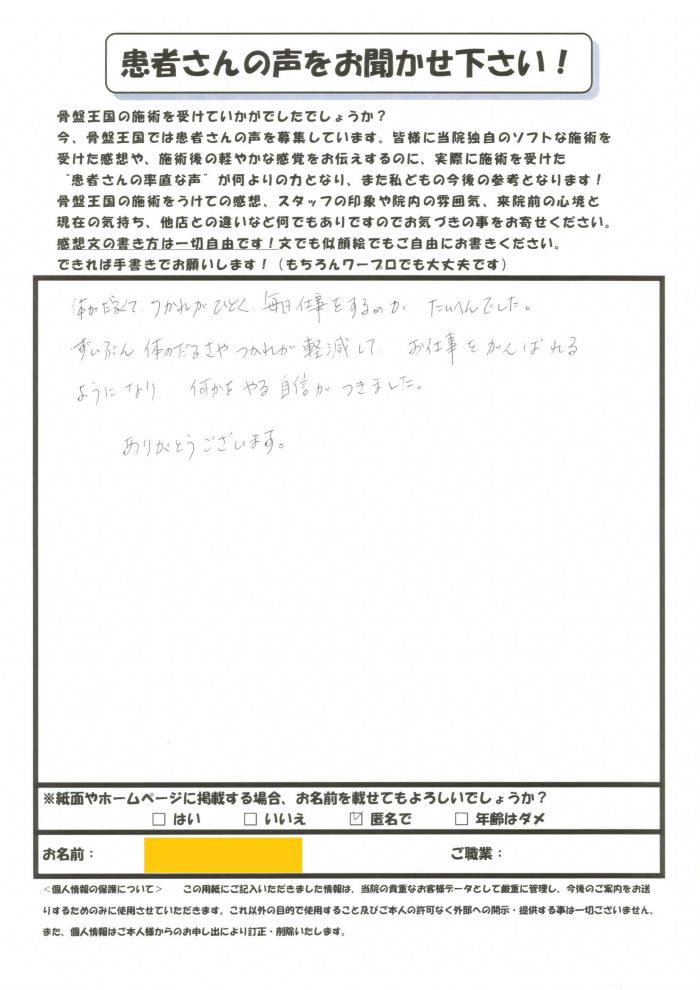 患者さんの声をお聞かせ下さい！
骨盤王国の施術を受けていかがでしたでしょうか？
今、骨盤王国では患者さんの声を募集しています。皆様に当院独自のソフトな施術を
受けた感想や、施術後の軽やかな感覚をお伝えするのに、実際に施術を受けた
"患者さんの率直な声"が何よりの力となり、また私どもの今後の参考となります！
骨盤王国の施術をうけての感想、スタッフの印象や院内の雰囲気、来院前の心境と
現在の気持ち、他店との違いなど何でもありですのでお気づきの事をお寄せください。
感想文の書き方は一切自由です！文でも似顔絵でもご自由にお書きください。
できれば手書きでお願いします！（もちろんワープロでも大丈夫です）
体がだるくて、つかれがひどく、毎日仕事をするのが たいへんでした。
ずいぶん 体のだるさや つかれが 軽減して、 お仕事を がんばれる
ようになり、 何かを やる 自信が つきました。
ありがとうございます。
※紙面やホームページに掲載する場合、お名前を載せてもよろしいでしょうか？
□ はい □ いいえ ☑ 匿名で □ 年齢はダメ
お名前： ご職業：
＜個人情報の保護について＞ この用紙にご記入いただきました情報は、当院の貴重なお客様データとして厳重に管理し、今後のご案内をお送
りするためのみに使用させていただきます。これ以外の目的で使用すること及びご本人の許可なく外部への開示・提供する事は一切ございません。
また、個人情報はご本人様からのお申し出により訂正・削除いたします。